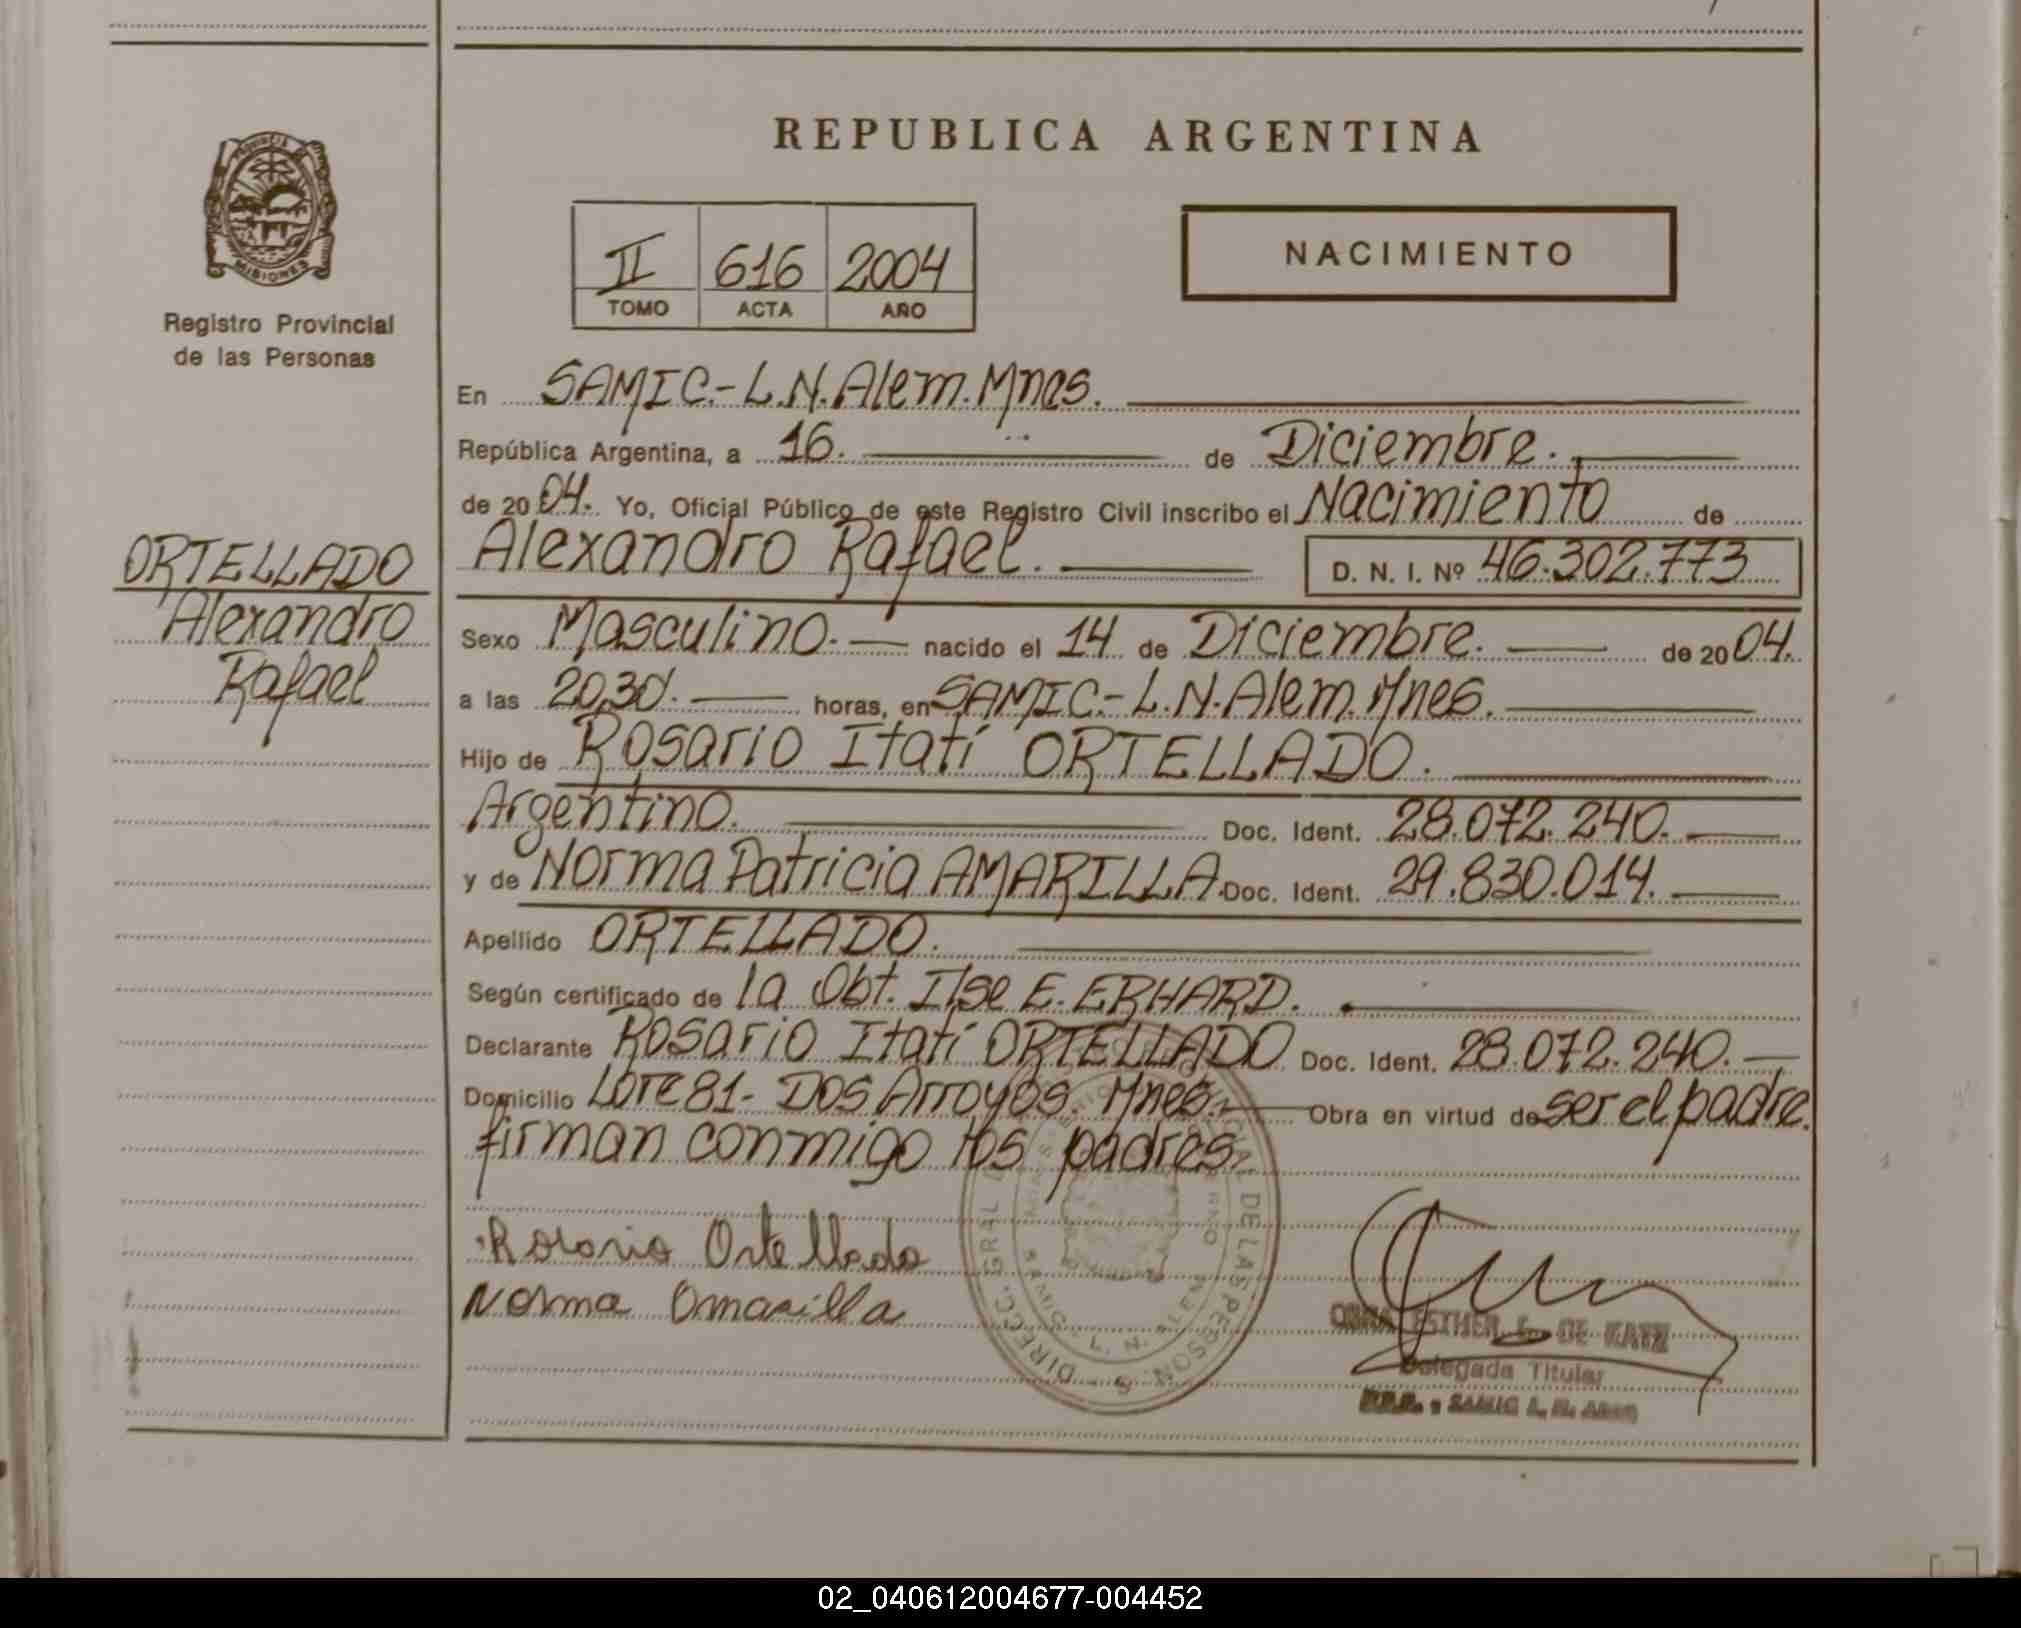 REPUBLICA ARGENTINA
MISIONES
Registro Provincial
de las Personas
II 616 2004
TOMO ACTA AÑO
NACIMIENTO
En SAMIC.-L.N.Alem.Mnes.
República Argentina, a 16. de Diciembre.
de 2004. Yo, Oficial Público de este Registro Civil inscribo el Nacimiento de
Alexandro Rafael. D. N. I. Nº 46.302.773
ORTELLADO
Alexandro
Rafael
Sexo Masculino. nacido el 14 de Diciembre. de 2004.
a las 20,30. horas, en SAMIC.-L.N.Alem.Mnes.
Hijo de Rosario Itatí ORTELLADO.
Argentino. Doc. Ident. 28.072.240.
y de Norma Patricia AMARILLA. Doc. Ident. 29.830.014.
Apellido ORTELLADO.
Según certificado de la Obt. Ilse E. ERHARD.
Declarante Rosario Itatí ORTELLADO Doc. Ident. 28.072.240.
Domicilio Lote 81- Dos Arroyos. Mnes. Obra en virtud de ser el padre.
firman conmigo los padres.
Rosario Ortellado
Norma Amarilla
DIREC. GRAL DE LAS PERSON
ESTHER DE KATZ
Delegada Titular
02_040612004677-004452